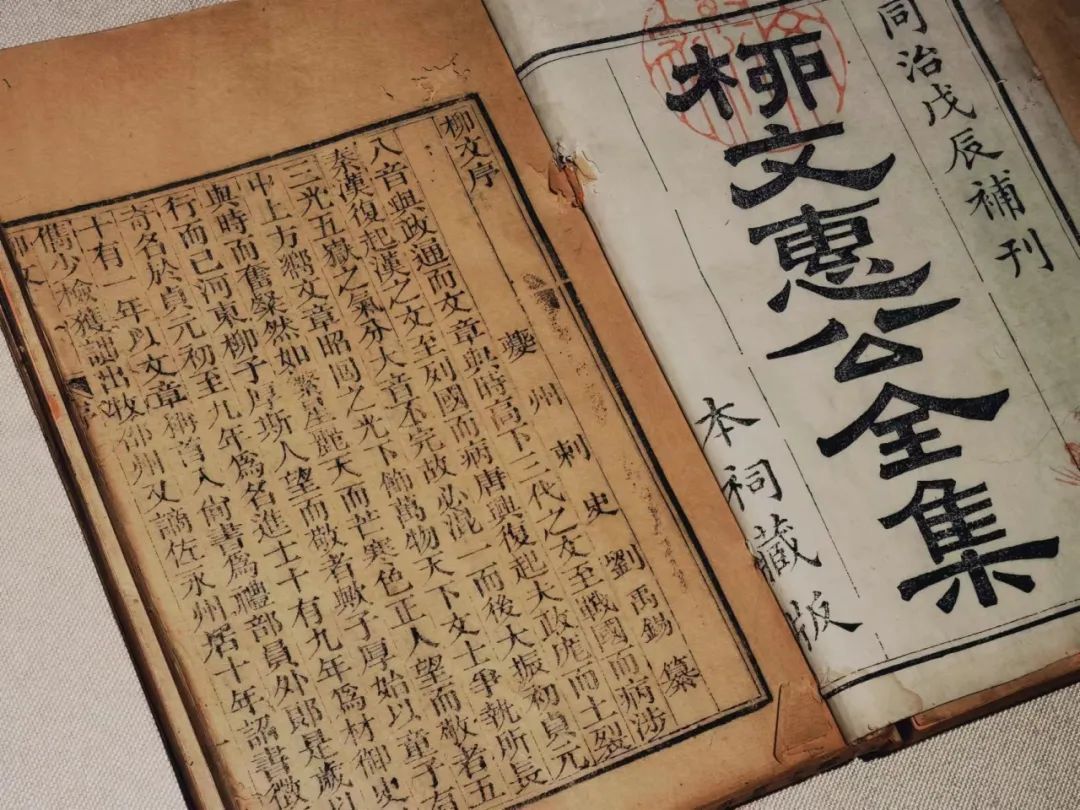 同治戊辰補刊
柳文惠公全集
本祠藏版
柳文序
夔州刺史劉禹錫纂
八音與政通而文章與時高下三代之文至戰國而病涉
秦漢復起漢之文至列國而病唐興復起夫政厖而土裂
三光五嶽之氣分大音不完故必混一而後大振初貞元
中上方嚮文章昭回之光下飾萬物天下文士爭執所長
與時而奮粲然如繁星麗天而芒寒色正人望而敬者五
行而已河東柳子厚斯人望而敬者歟子厚始以童子有
奇名於貞元初至九年爲名進士十有九年爲材御史
十有一年以文章稱首入尚書爲禮部員外郎是歲以
儁少檢獲訕出牧邵州又謫佐永州居十年詔書徵